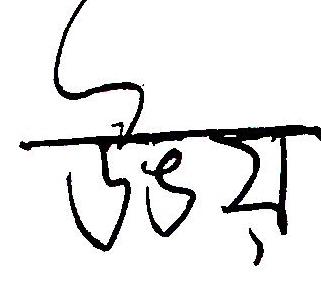 উভয়